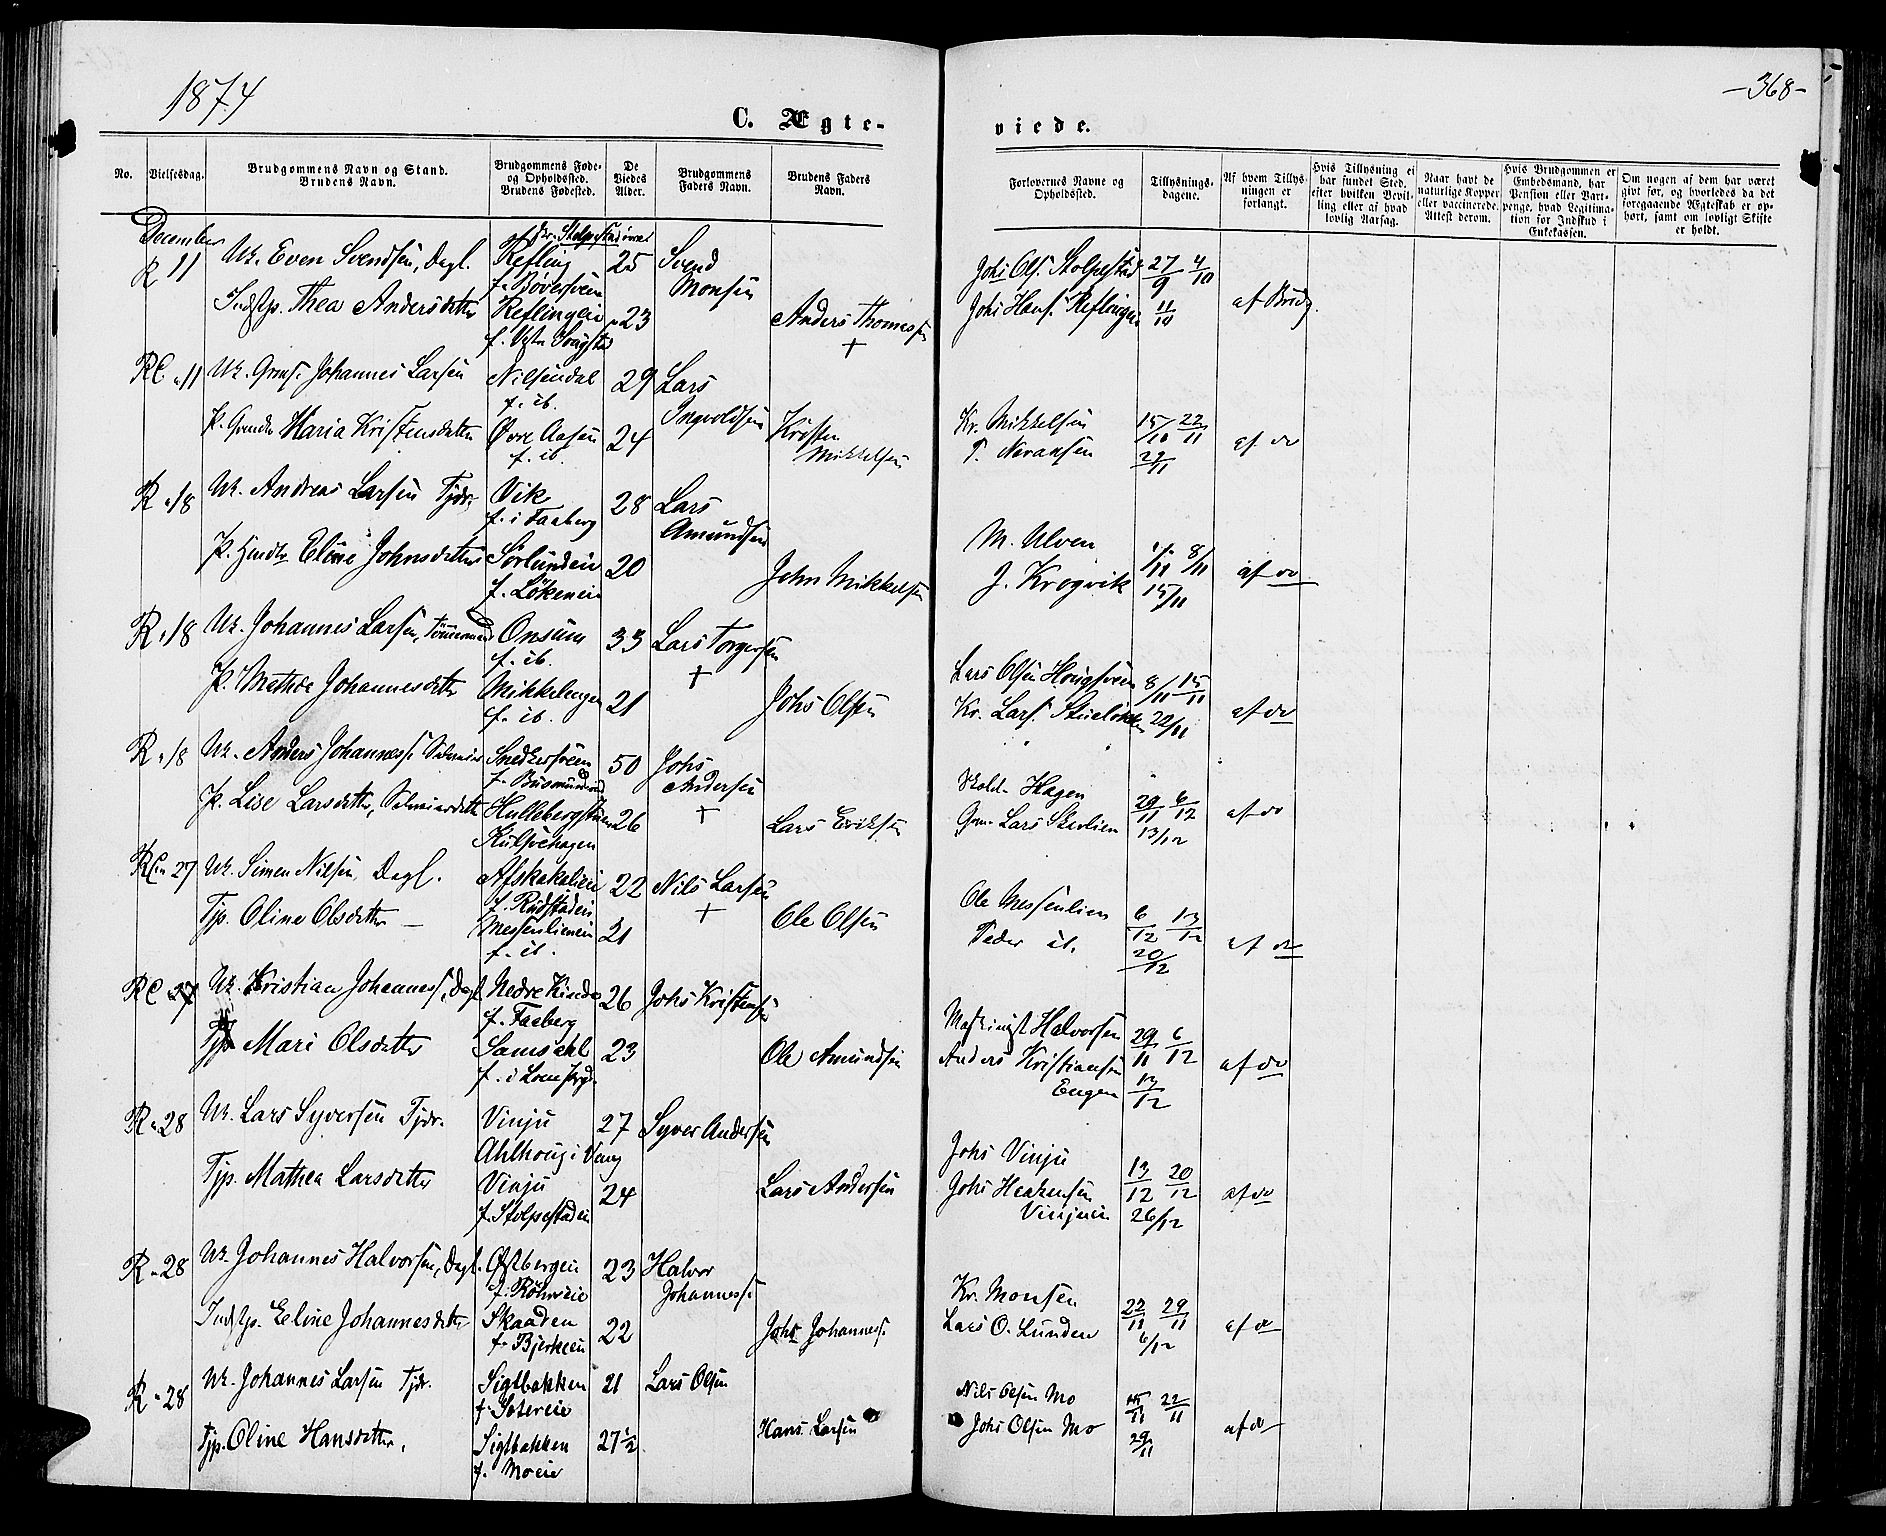 1874
-368-
C. Ægte-
viede.
No.
Vielsesdag.
Brudgommens Navn og Stand.
Brudens Navn.
Brudgommens Føde-
og Opholdssted.
Brudens Fødested.
De
Viedes
Alder.
Brudgommens
Faders Navn.
Brudens Faders
Navn.
Forlovernes Navne og
Opholdssted.
Tillysnings-
dagene.
Af hvem Tillys-
ningen er
forlangt.
Hvis Tillysning ei
har fundet Sted,
efter hvilken Bevil-
ling eller af hvad
lovlig Aarsag.
Naar havt de
naturlige Kopper
eller vaccinerede.
Attest derom.
Hvis Brudgommen er
Embedsmand, har
Pension eller Vart-
penge, hvad Legitima-
tion for Indskud i
Enkekassen.
Om nogen af dem har været
gift før, og hvorledes da det
foregaaende Ægteskab er op-
hørt, samt om lovligt Skifte
er holdt.
December
R 11 Uk. Even Svendsen, Dagl. Refling 25 Svend Monsen
Johs Ols. Stolpestad 27/9 4/10
Thea Andersdatter Reflingeie 23 Anders Thomesen +
Johs Hans. Reflingeie 11/10 af Brudg.
RC " 11 Uk. Johannes Larsen Nilsendal f. ib. 29 Lars Ingvoldsen
P. Maria Kristensdatter Øvre Aasen f. ib. 24 Kristen Mikkelsen
Kr. Mikkelsen 15/10 22/11 af do
29/11
R " 18 Uk. Andreas Larsen Tjdr. Vik f. i Faaberg 28 Lars Amundsen
P. Eline Johnsdatter Sørlundeie f. Løkeneie 20 John Mikkelsen
M. Ulven 8/11 af do
J. Krogvik 15/11
R " 18 Uk. Johannes Larsen, Tømmermand Onsum f. ib. 33 Lars Torgersen +
P. Mathea Johannesdatter Mikkelengen f. ib. 21 Johs Olsen
Lars Olsen Hougsveen 8/11 15/11
Kr. Lars. 22/11 af do
R " 18 Uk. Anders Johanness. Snedkersveen 50 Johs Andersen +
P. Lise Larsdatter, Hullebergstuen 26 Lars Eriksen
Hagen 29/11 6/12 af do
Lars Skavlien 13/12
RC " 27 Uk. Simen Nilsen, Dagl. Afskakalien f. Rudstadeie 22 Nils Larsen +
Tjp. Oline Olsdatter - Messenlieneie f. ib. 21 Ole Olsen
Ole Messenlien 6/12 13/12
Peder ib. 20/12 af do
RC " 27 Uk. Kristian Johanness., Dagl. Nedre f. Faaberg 26 Johs Kristensen
Tjp. Mari Olsdatter 23 Ole Amundsen
Maskinist Halvorsen 29/11 6/12
Anders Kristiansen Engen 13/12 af do
R " 28 Uk. Lars Syversen Tjdr. Vinju 27 Syver Andersen
Ahlhoug i Vang
Tjp. Mathea Larsdatter Vinju f. Stolpestadeie 24 Lars Andersen
Johs Vinju 13/12 20/12
Johs Heakensen Vinjueie 26/12 af do
R " 28 Uk. Johannes Halvorsen, Dagl. Østbergeie 23 Halvor Johanness.
Eline Johannesdatter Skaaden f. Bjerkeeie 22 Johs Johanness.
Kr. Monsen 22/11 29/11
Lars O. Lunden 6/12 af do
R " 28 Uk. Johannes Larsen Tjdr. Siglbakken f. Sotereie 21 Lars Olsen
Tjp. Oline Hansdatter, Siglbakken f. Moeie 27 1/2 Hans Larsen
Nils Olsen Mo 15/11 22/11
Johs Olsen Mo 29/11 af do